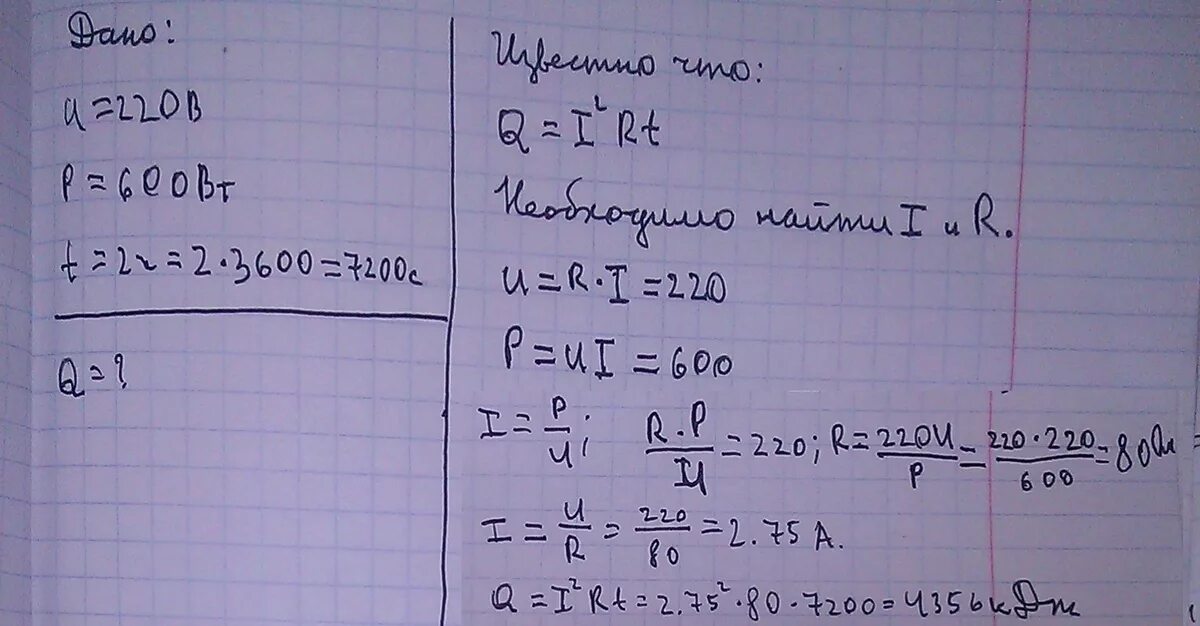 Дано:
U=220В
P=600Вт
t=2ч=2·3600=7200с
Q=?
Известно что:
Q=I²Rt
Необходимо найти I и R.
U=R·I=220
P=UI=600
I=P/U; R·P/U=220; R=220U/P=220·220/600=80Ом
I=U/R=220/80=2.75А.
Q=I²Rt=2.75²·80·7200=4356кДж